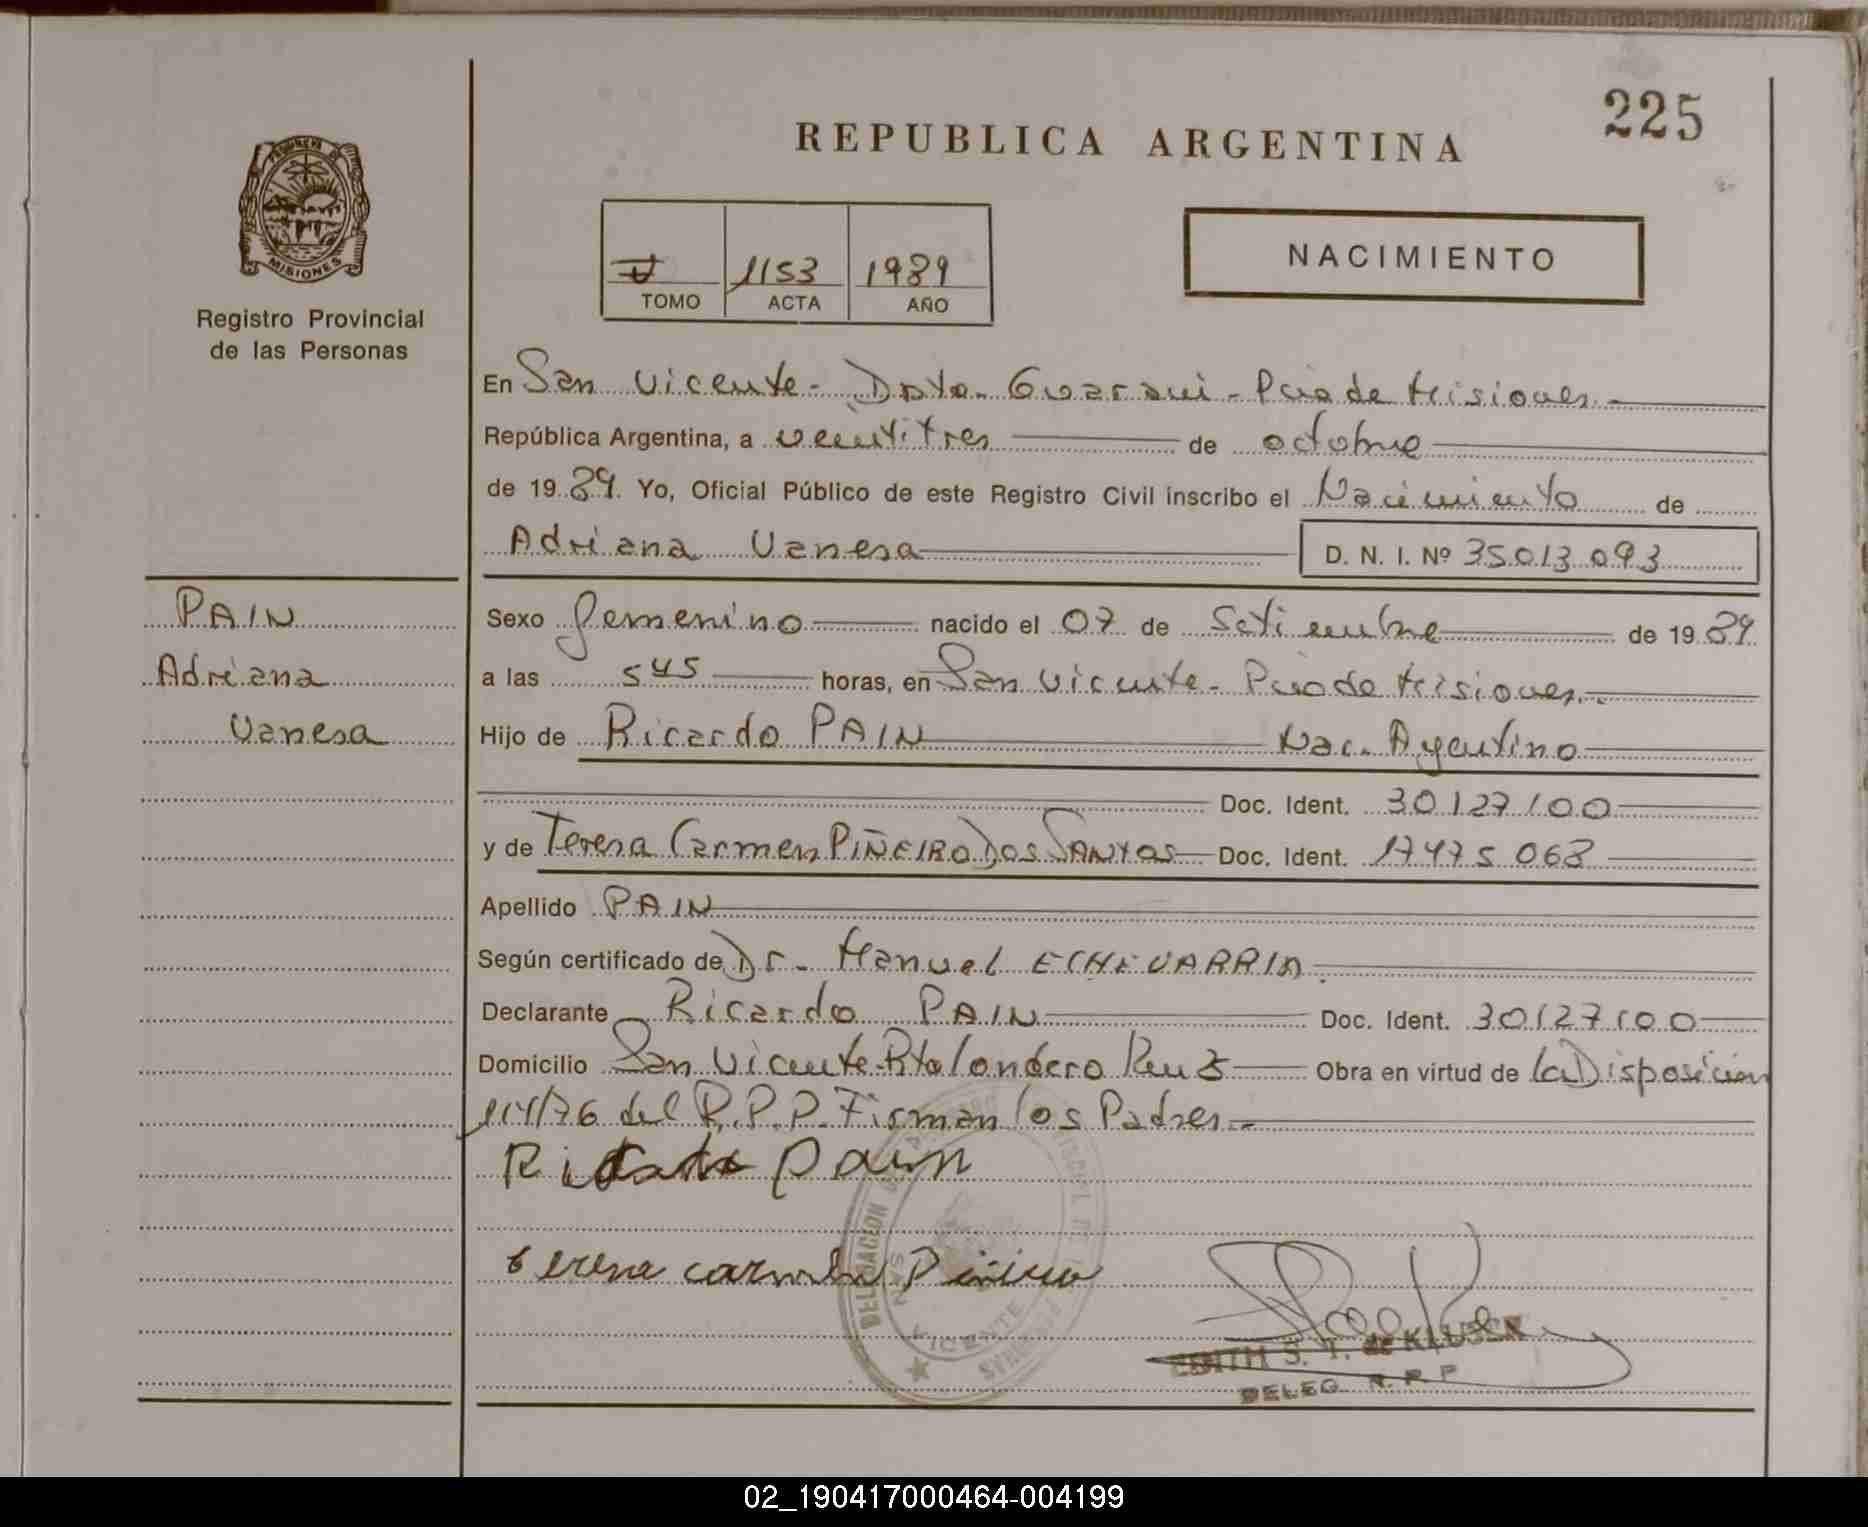 225
REPUBLICA ARGENTINA
PROVINCIA DE
MISIONES
Registro Provincial
de las Personas
NACIMIENTO
V 1153 1989
TOMO ACTA AÑO
En San Vicente - Dpto. Guarani - Pcia de Misiones.-
República Argentina, a veintitres de octubre
de 19 89. Yo, Oficial Público de este Registro Civil inscribo el Nacimiento de
Adriana Vanesa D. N. I. Nº 35013093
PAIN
Adriana
Vanesa
Sexo femenino nacido el 07 de Setiembre de 19 89
a las 545 horas, en San Vicente - Pcia de Misiones.-
Hijo de Ricardo PAIN Nac. Argentino
Doc. Ident. 30127100
y de Teresa Carmen PIÑEIRO Dos SANTOS Doc. Ident. 17475068
Apellido PAIN
Según certificado de Dr. Manuel ECHEVARRIA
Declarante Ricardo PAIN Doc. Ident. 30127100
Domicilio San Vicente Obra en virtud de la Disposicion
114/76 del R.P.P. Firman los Padres.-
Ricardo Pain
teresa carmen Piñeiro
DELEGACION
SAN VICENTE
EDITH S. T. de KLUSCK
DELEG. R. P. P
02_190417000464-004199